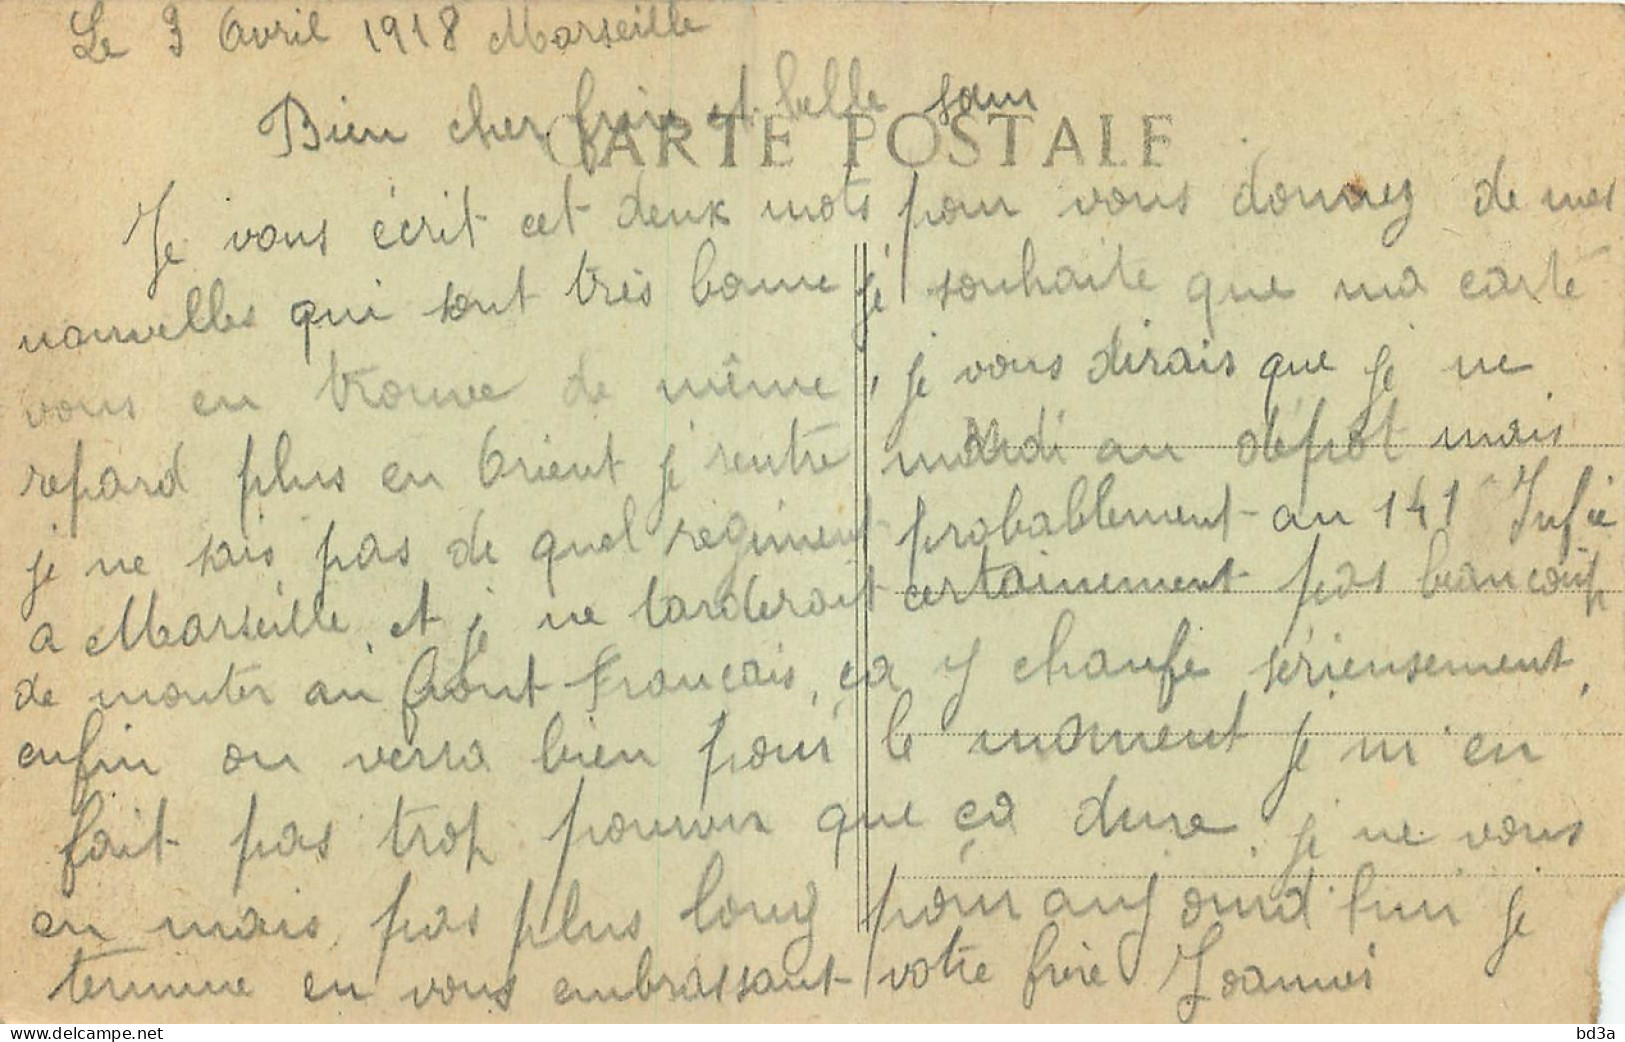 Le 3 Avril 1918 Marseille
Bien cher frère et belle sœur
CARTE POSTALE
Je vous écrit cet deux mots pour vous donnez de mes
nouvelles qui sont très bonne je souhaite que ma carte
vous en trouve de même, je vous dirais que je ne
repard plus en Orient je rentre mardi au dépot mais
je ne sais pas de quel regiment probablement au 141 Infie
a Marseille, et je ne tarderait certainement pas beaucoup
de monter au front Français, ça y chaufe sérieusement,
enfin on verra bien pour le moment je m'en
fait pas trop pourvu que ça dure, je ne vous
en mais pas plus long pour aujourd'hui je
termine en vous embrassant votre frère Joannès
bd3a